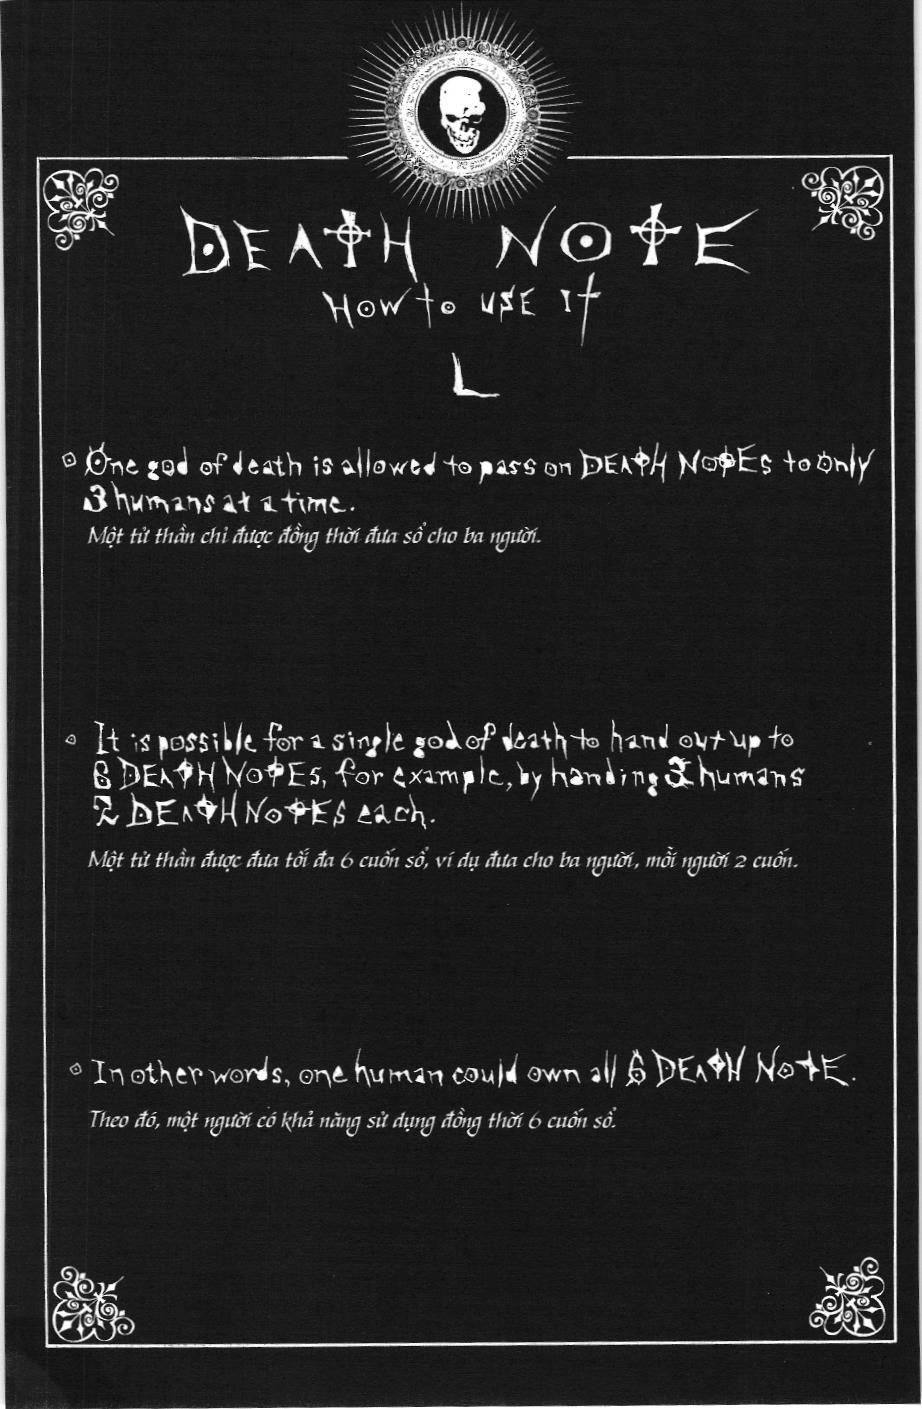 DEATH NOTE
How to use it
L
One god of death is allowed to pass on DEATH NOTES to only
3 humans at a time.
Một tử thần chỉ được đồng thời đưa sổ cho ba người.
It is possible for a single god of death to hand out up to
6 DEATH NOTES, for example, by handing 3 humans
2 DEATH NOTES each.
Một tử thần được đưa tối đa 6 cuốn sổ, ví dụ đưa cho ba người, mỗi người 2 cuốn.
In other words, one human could own all 6 DEATH NOTE.
Theo đó, một người có khả năng sử dụng đồng thời 6 cuốn sổ.